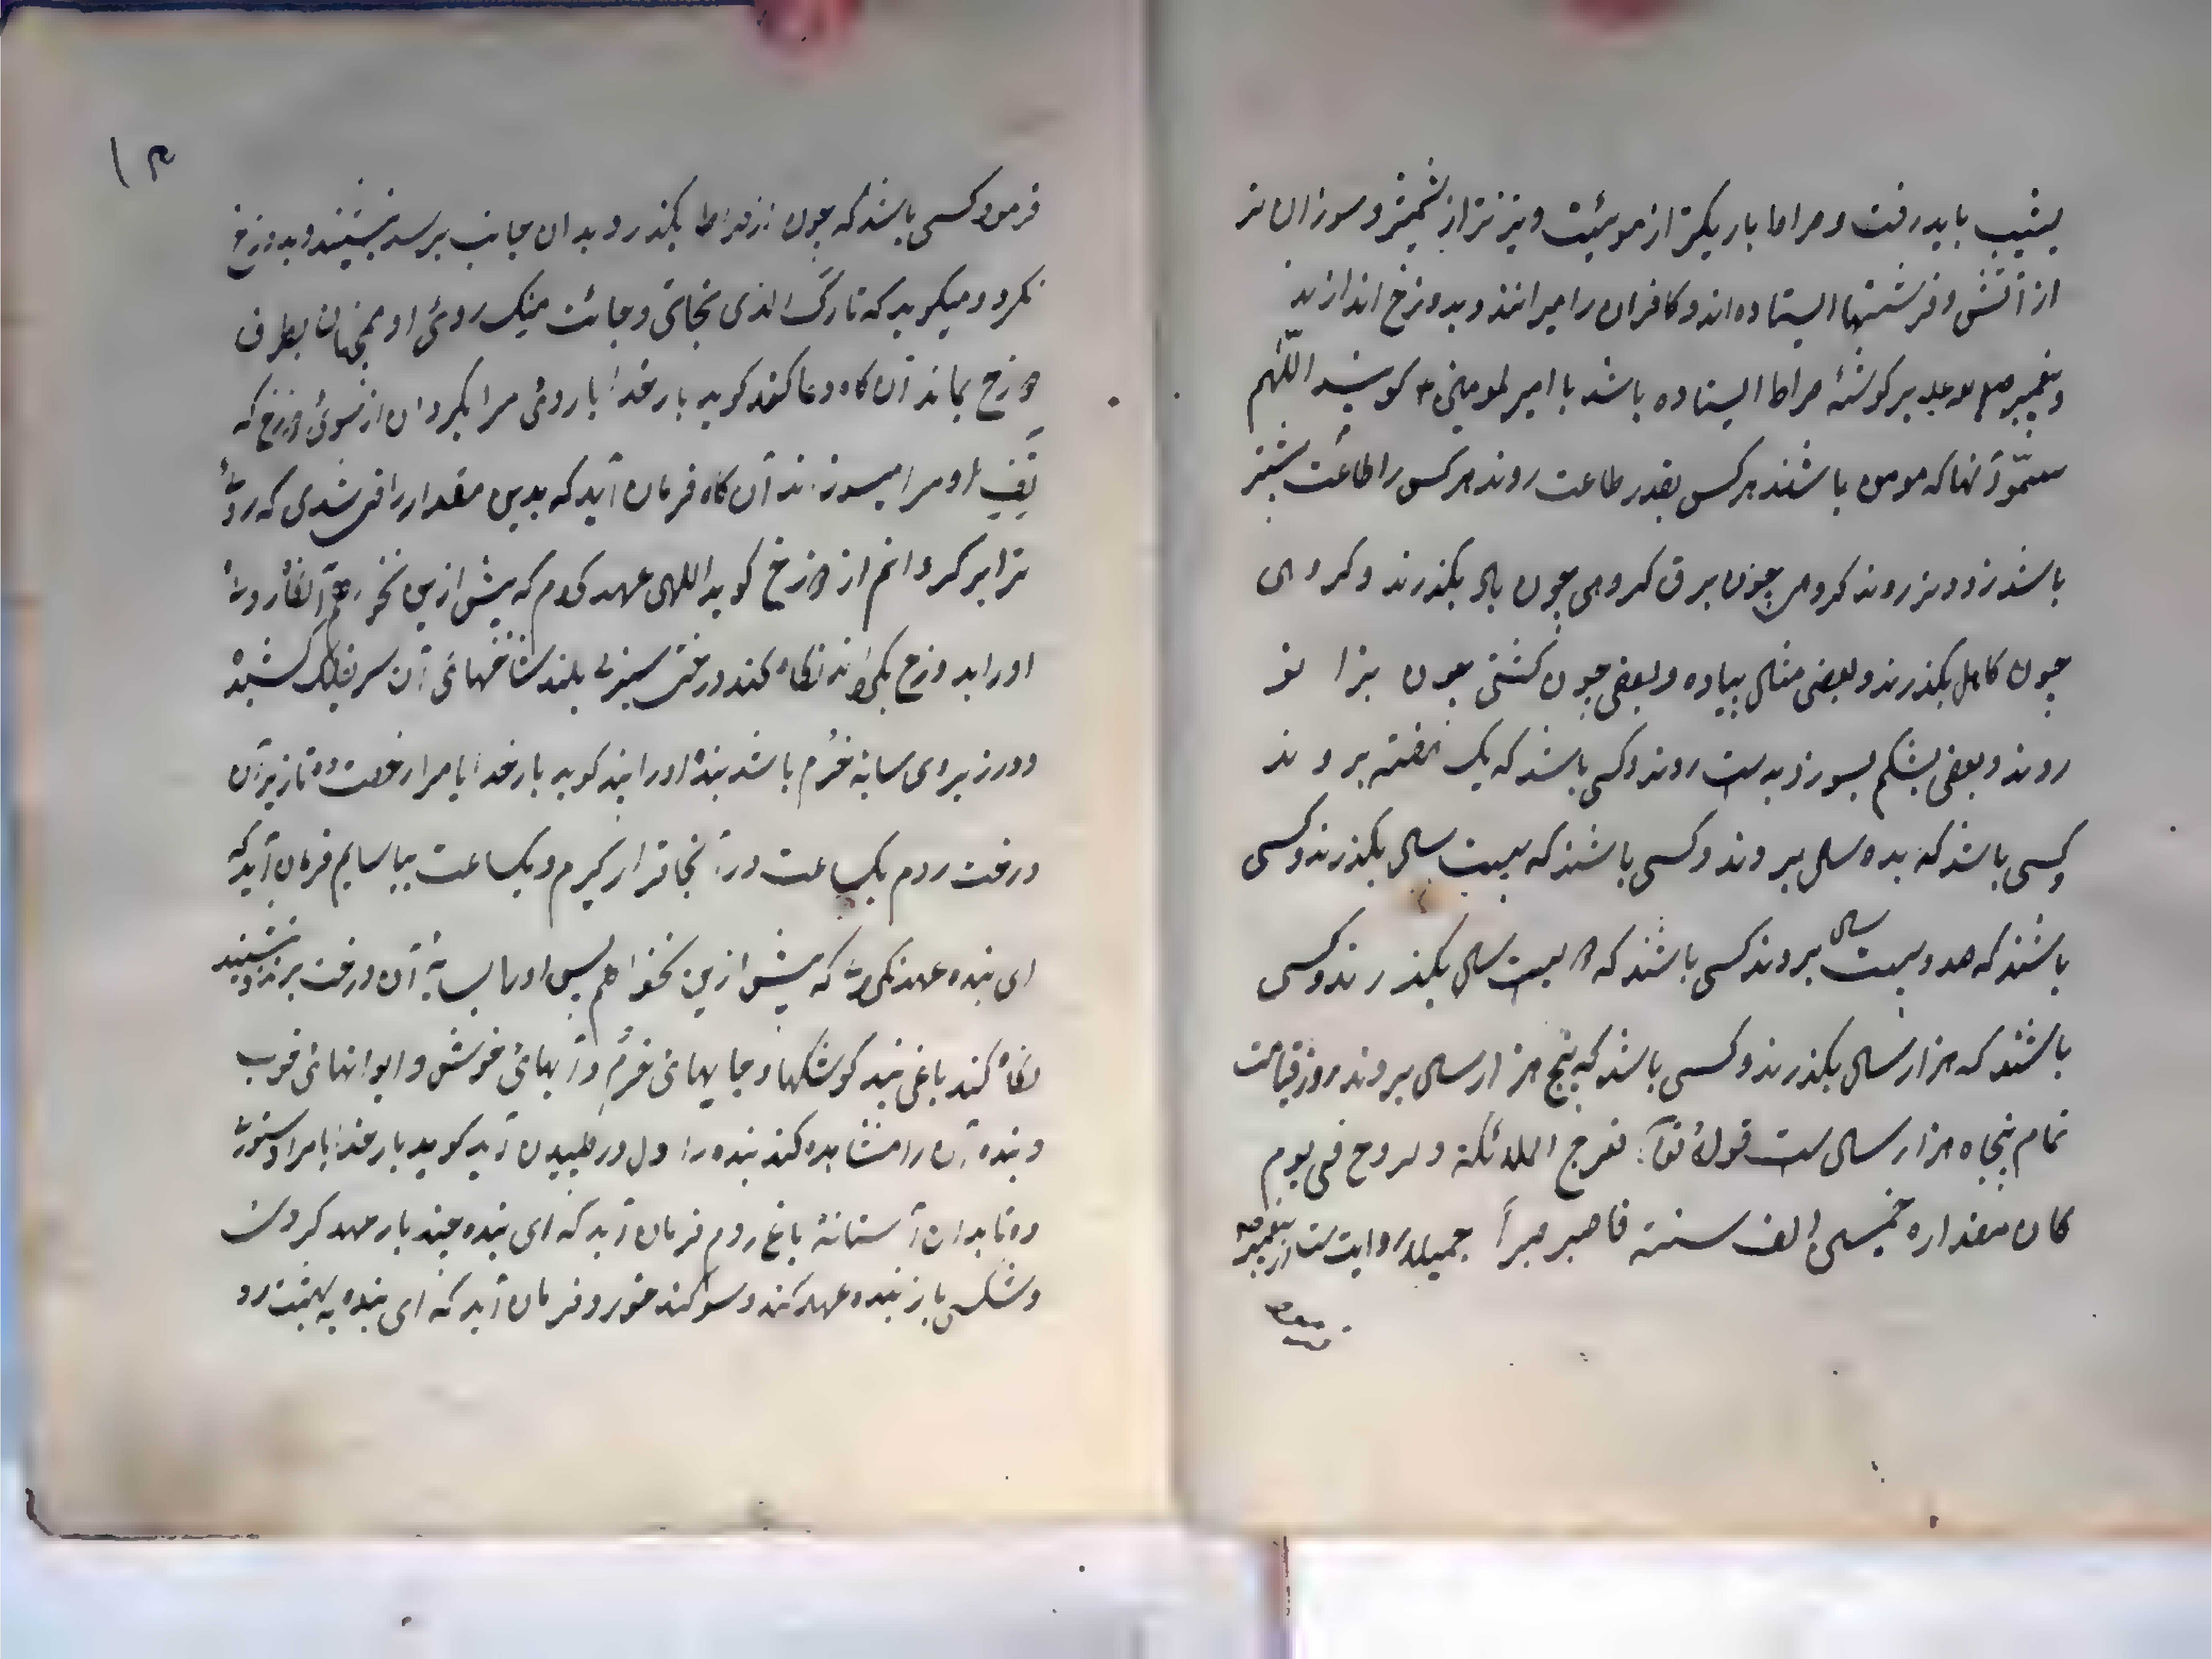 بشیب باید رفت و صراط باریکتر از مویئیت و تیزتر از شمشیر و سوزان تر
از آتش و فرشتها ایستاده اند و کافران را میرانند و بدوزخ اندازند
و پیغمبر صلی الله علیه بر کوشهٔ صراط ایستاده باشد با امیر المومنین کویند اللّٰهم
سلّم و آنها که مومن باشند هرکس بقدر طاعت روند هرکس را طاعت بیشتر
باشد زودتر روند کروهی چون برق کروهی چون باد بکذرند و کروهی
چون کامل بکذرند و بعضی مثال پیاده و بعضی چون کشتی چون بزانو
روند و بعضی بشکم بسوزد بدست روند و کسی باشد که یک هفته بروند
و کسی باشد که بده سال بروند و کسی باشند که بیست سال بکذرند و کسی
باشند که صد و بیست سال بروند کسی باشند که دویست سال بکذرند و کسی
باشند که هزار سال بکذرند و کسی باشد که پنج هزار سال بروند و روز قیامت
تمام پنجاه هزار سال ست قولهٔ تعالی تعرج الملائکة و الروح فی یوم
کان مقداره خمسین الف سنته فاصبر صبراً جمیلا روایت ست از پیغمبر صلعم
فرمود
۱۳
فرمود کسی باشد که چون از صراط بکذرد و بدان جانب برسد بنشیند و بدوزخ
نکرد و میکوید که تبارک الذی نجانی و جانت منک روی او همچنان بطرف
دوزخ بماند آن کاه دعا کند کوید بار خدایا روی مرا بکردان از سوی دوزخ که
تف او مرا میسوزند آن کاه فرمان آید که بدین مقدار راضی شدی که روی
ترا بر کردانم از دوزخ کوید اللهی عهد کردم که پیش ازین نخواهم آنکاه روی
او را بدوزخ بکرداند نکاه کند درختی سبز بلند شاخهای آن سر بفلک کشیده
و در زیر وی سایه خرّم باشد بنده او را بیند کوید بار خدایا مرا رخصت ده تا زیر آن
درخت روم یکساعت در آنجا قرار کیرم و یکساعت بیاسایم فرمان آید که
ای بنده عهد نکردی که پیش ازین نخواهم پس او را بسایهٔ آن درخت برند و بنشیند
نکاه کند باغی بیند کوشکها و جایهای خرّم و آبهای خوش و ایوانهای خوب
و بنده آن را مشاهده کند بنده را دل در طپیدن آید کوید بار خدایا مرا دستوری
ده تا بدان آستانهٔ باغ روم فرمان آید که ای بنده چند بار عهد کردی
و شکستی باز بنده عهد کند و سوکند خورد و فرمان آید که ای بنده به بهشت رو